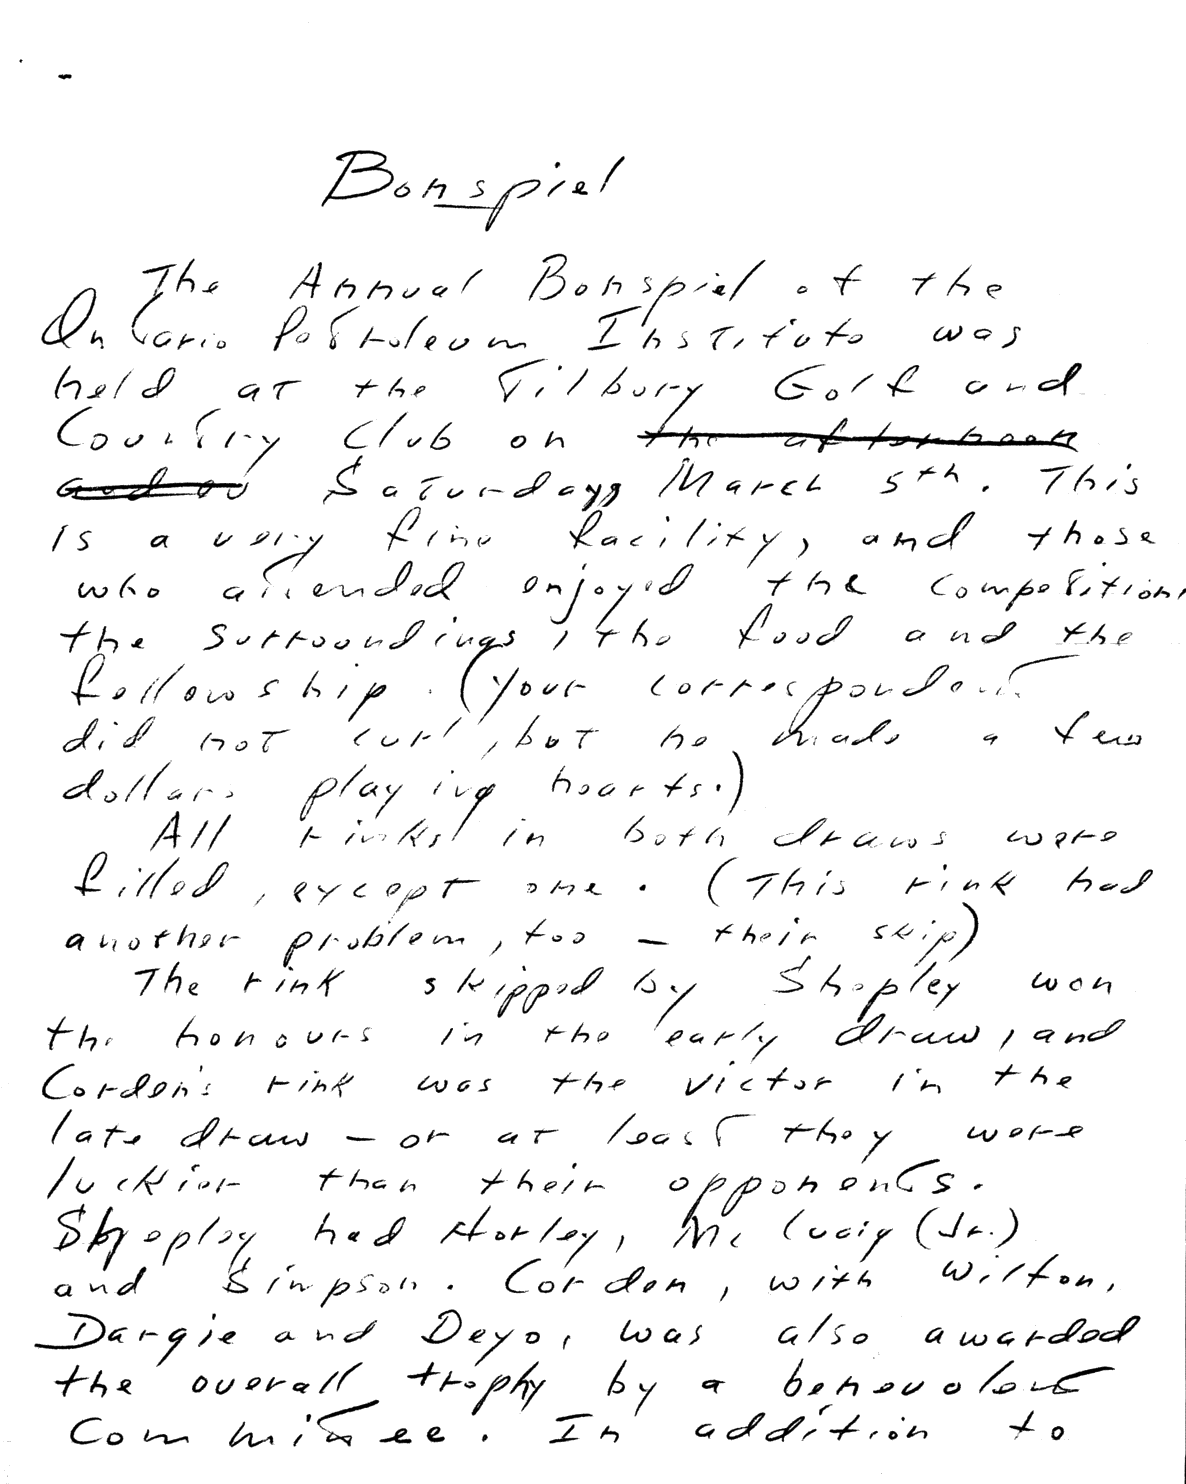 Bonspiel
The Annual Bonspiel of the
Ontario Petroleum Institute was
held at the Tilbury Golf and
Country Club on the afternoon
and ev Saturday, March 5th. This
is a very fine facility, and those
who attended enjoyed the competition,
the surroundings, the food and the
fellowship. (Your correspondent
did not curl, but he made a few
dollars playing hearts.)
All rinks in both draws were
filled, except one. (This rink had
another problem, too — their skip)
The rink skipped by Shepley won
the honours in the early draw, and
Corden's rink was the victor in the
late draw — or at least they were
luckier than their opponents.
Shepley had Horley, Mc (Jr.)
and Simpson. Corden, with Wilton,
Dargie and Deyo, was also awarded
the overall trophy by a benevolent
Committee. In addition to